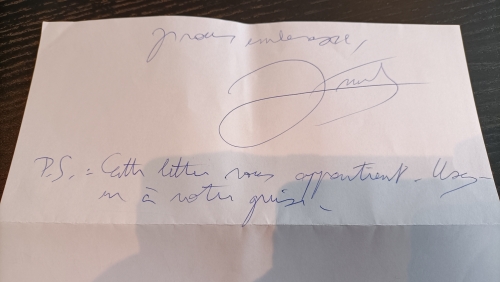 Je vous embrasse,
P.S. : Cette lettre vous appartient. Usez-
en à votre guise.